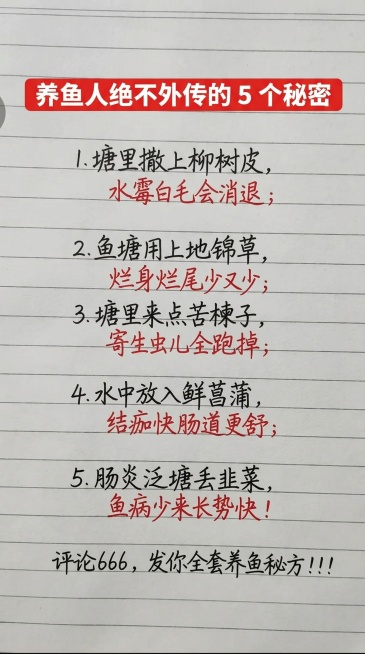 养鱼人绝不外传的 5 个秘密
1.塘里撒上柳树皮，
水霉白毛会消退；
2.鱼塘用上地锦草，
烂身烂尾少又少；
3.塘里来点苦楝子，
寄生虫儿全跑掉；
4.水中放入鲜菖蒲，
结痂快肠道更舒；
5.肠炎泛塘丢韭菜，
鱼病少来长势快！
评论666，发你全套养鱼秘方!!!